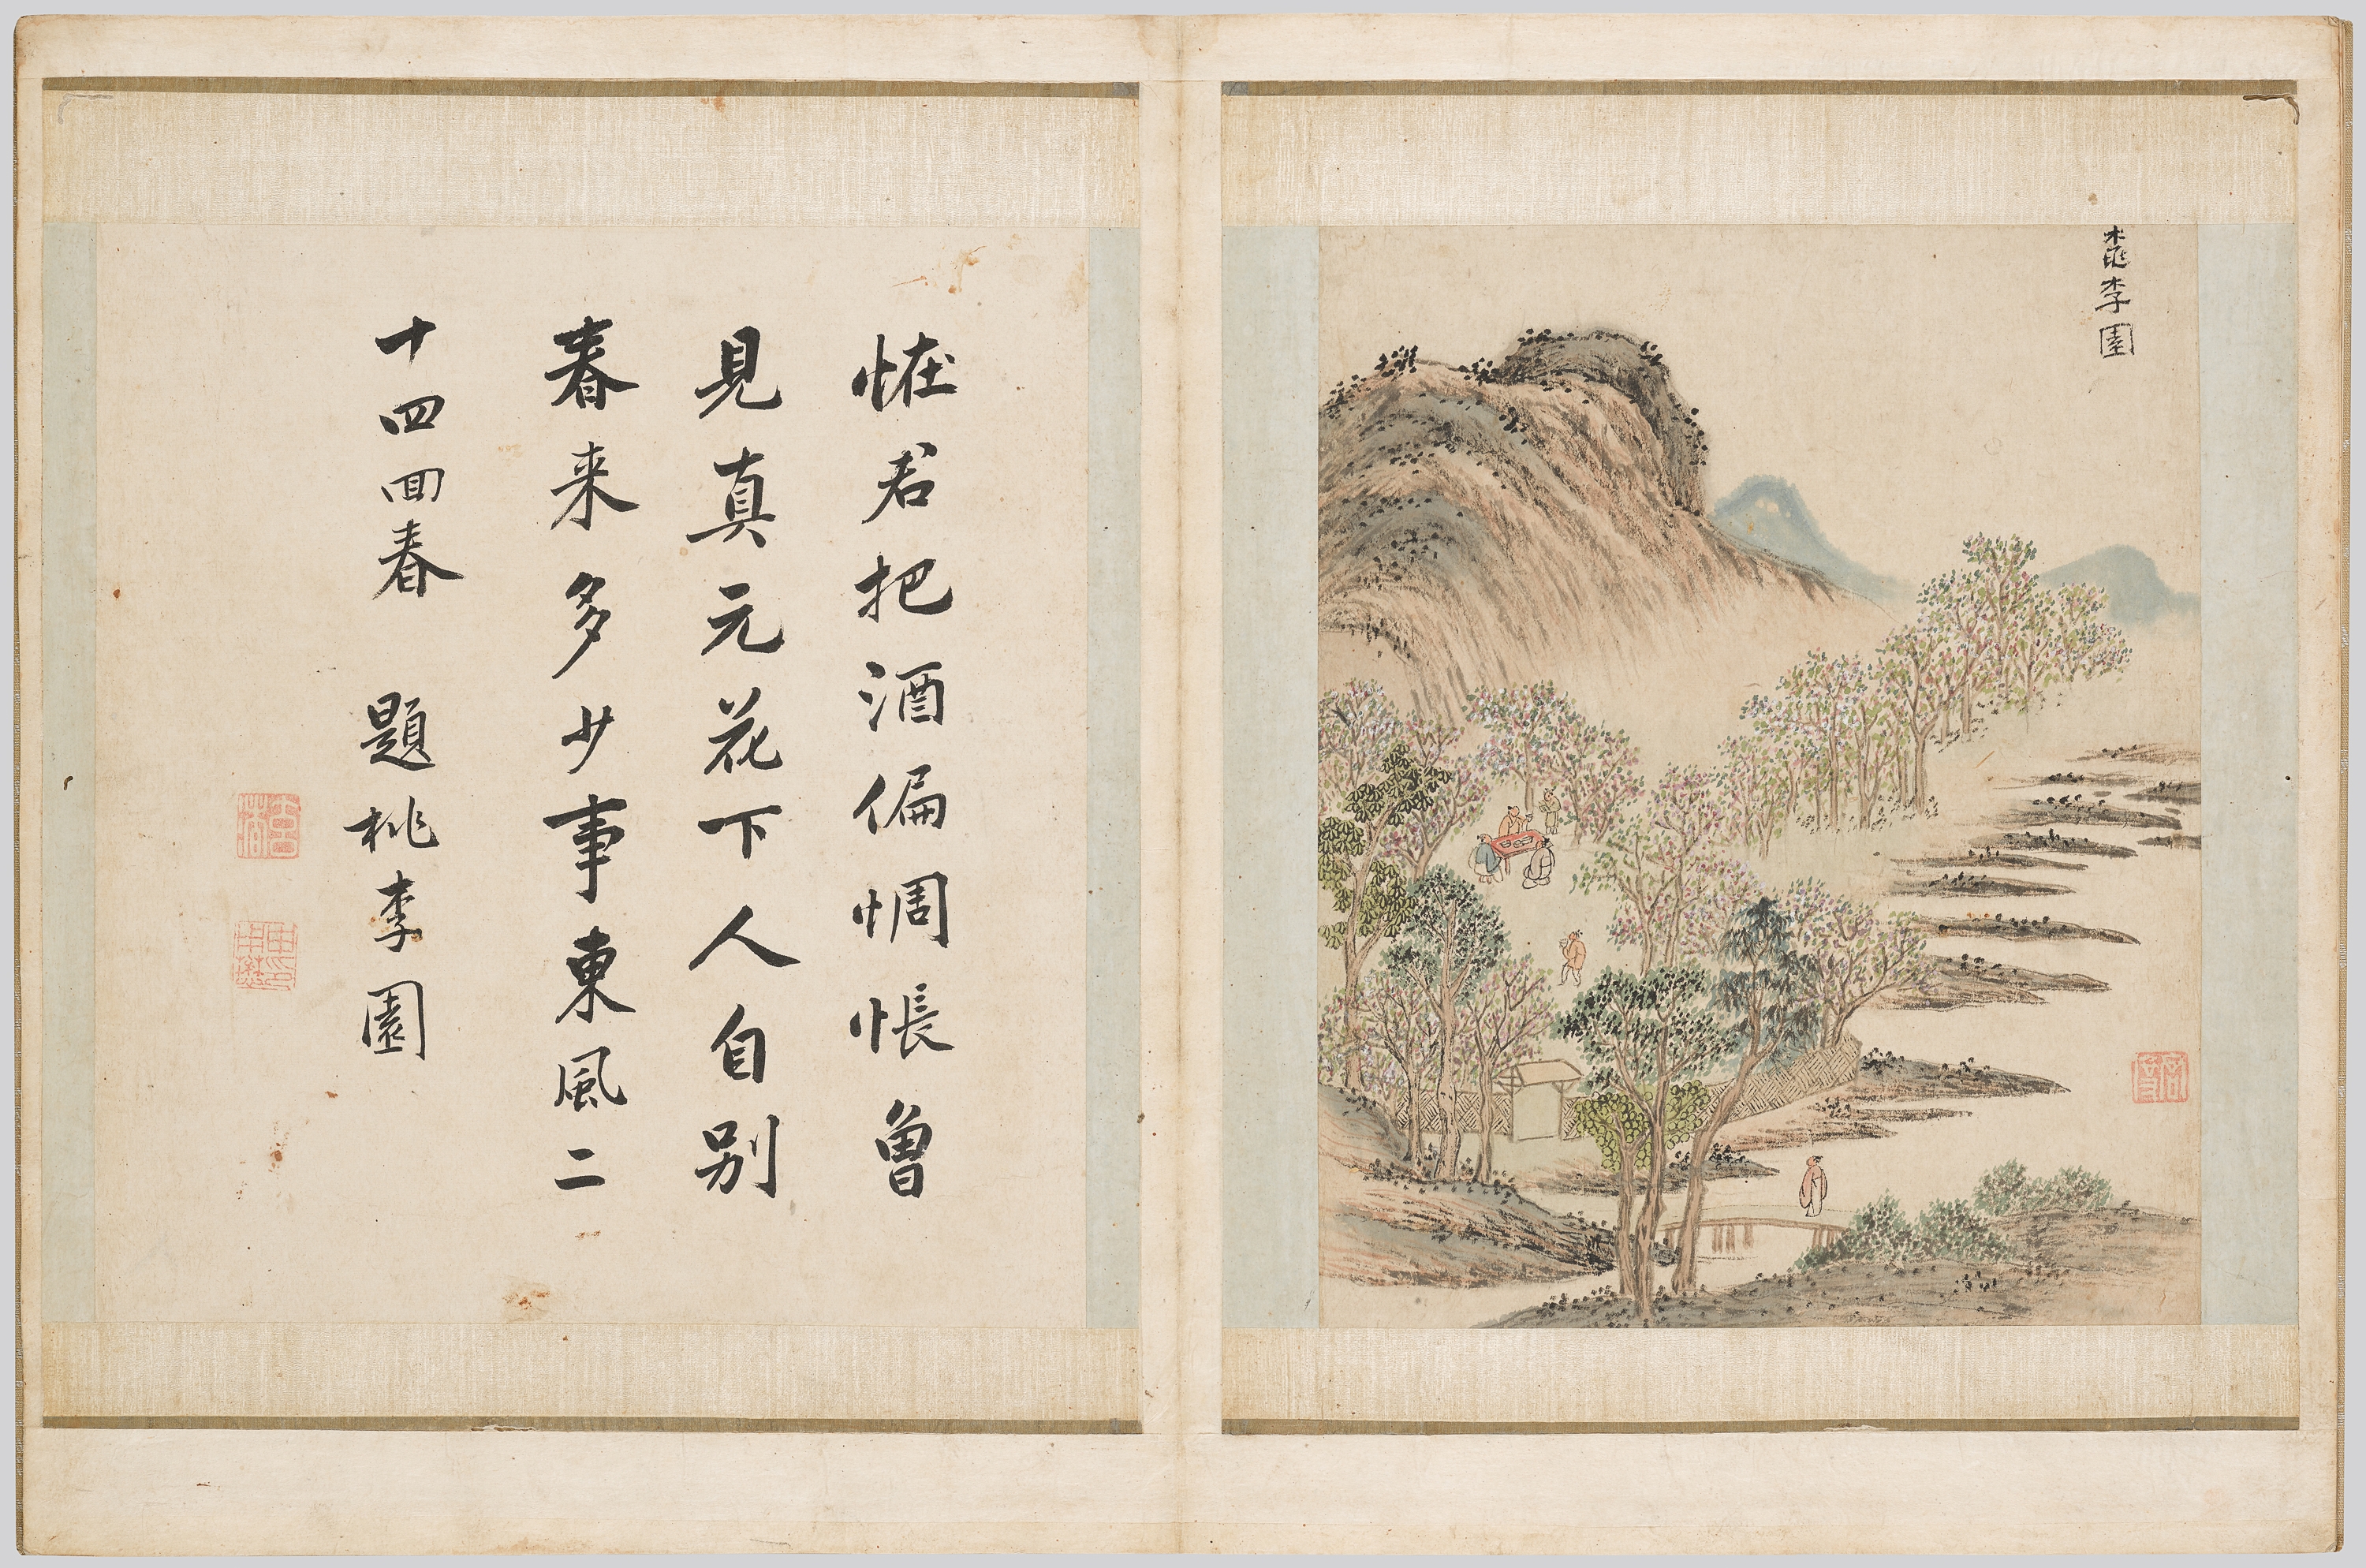 桃李園
恠君把酒偏惆悵曾
見真元花下人自别
春来多少事東風二
十四回春 題桃李園